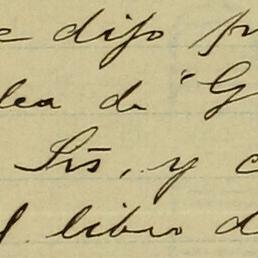 e dijo pr
lea de "G
Srs, y c
l libro d